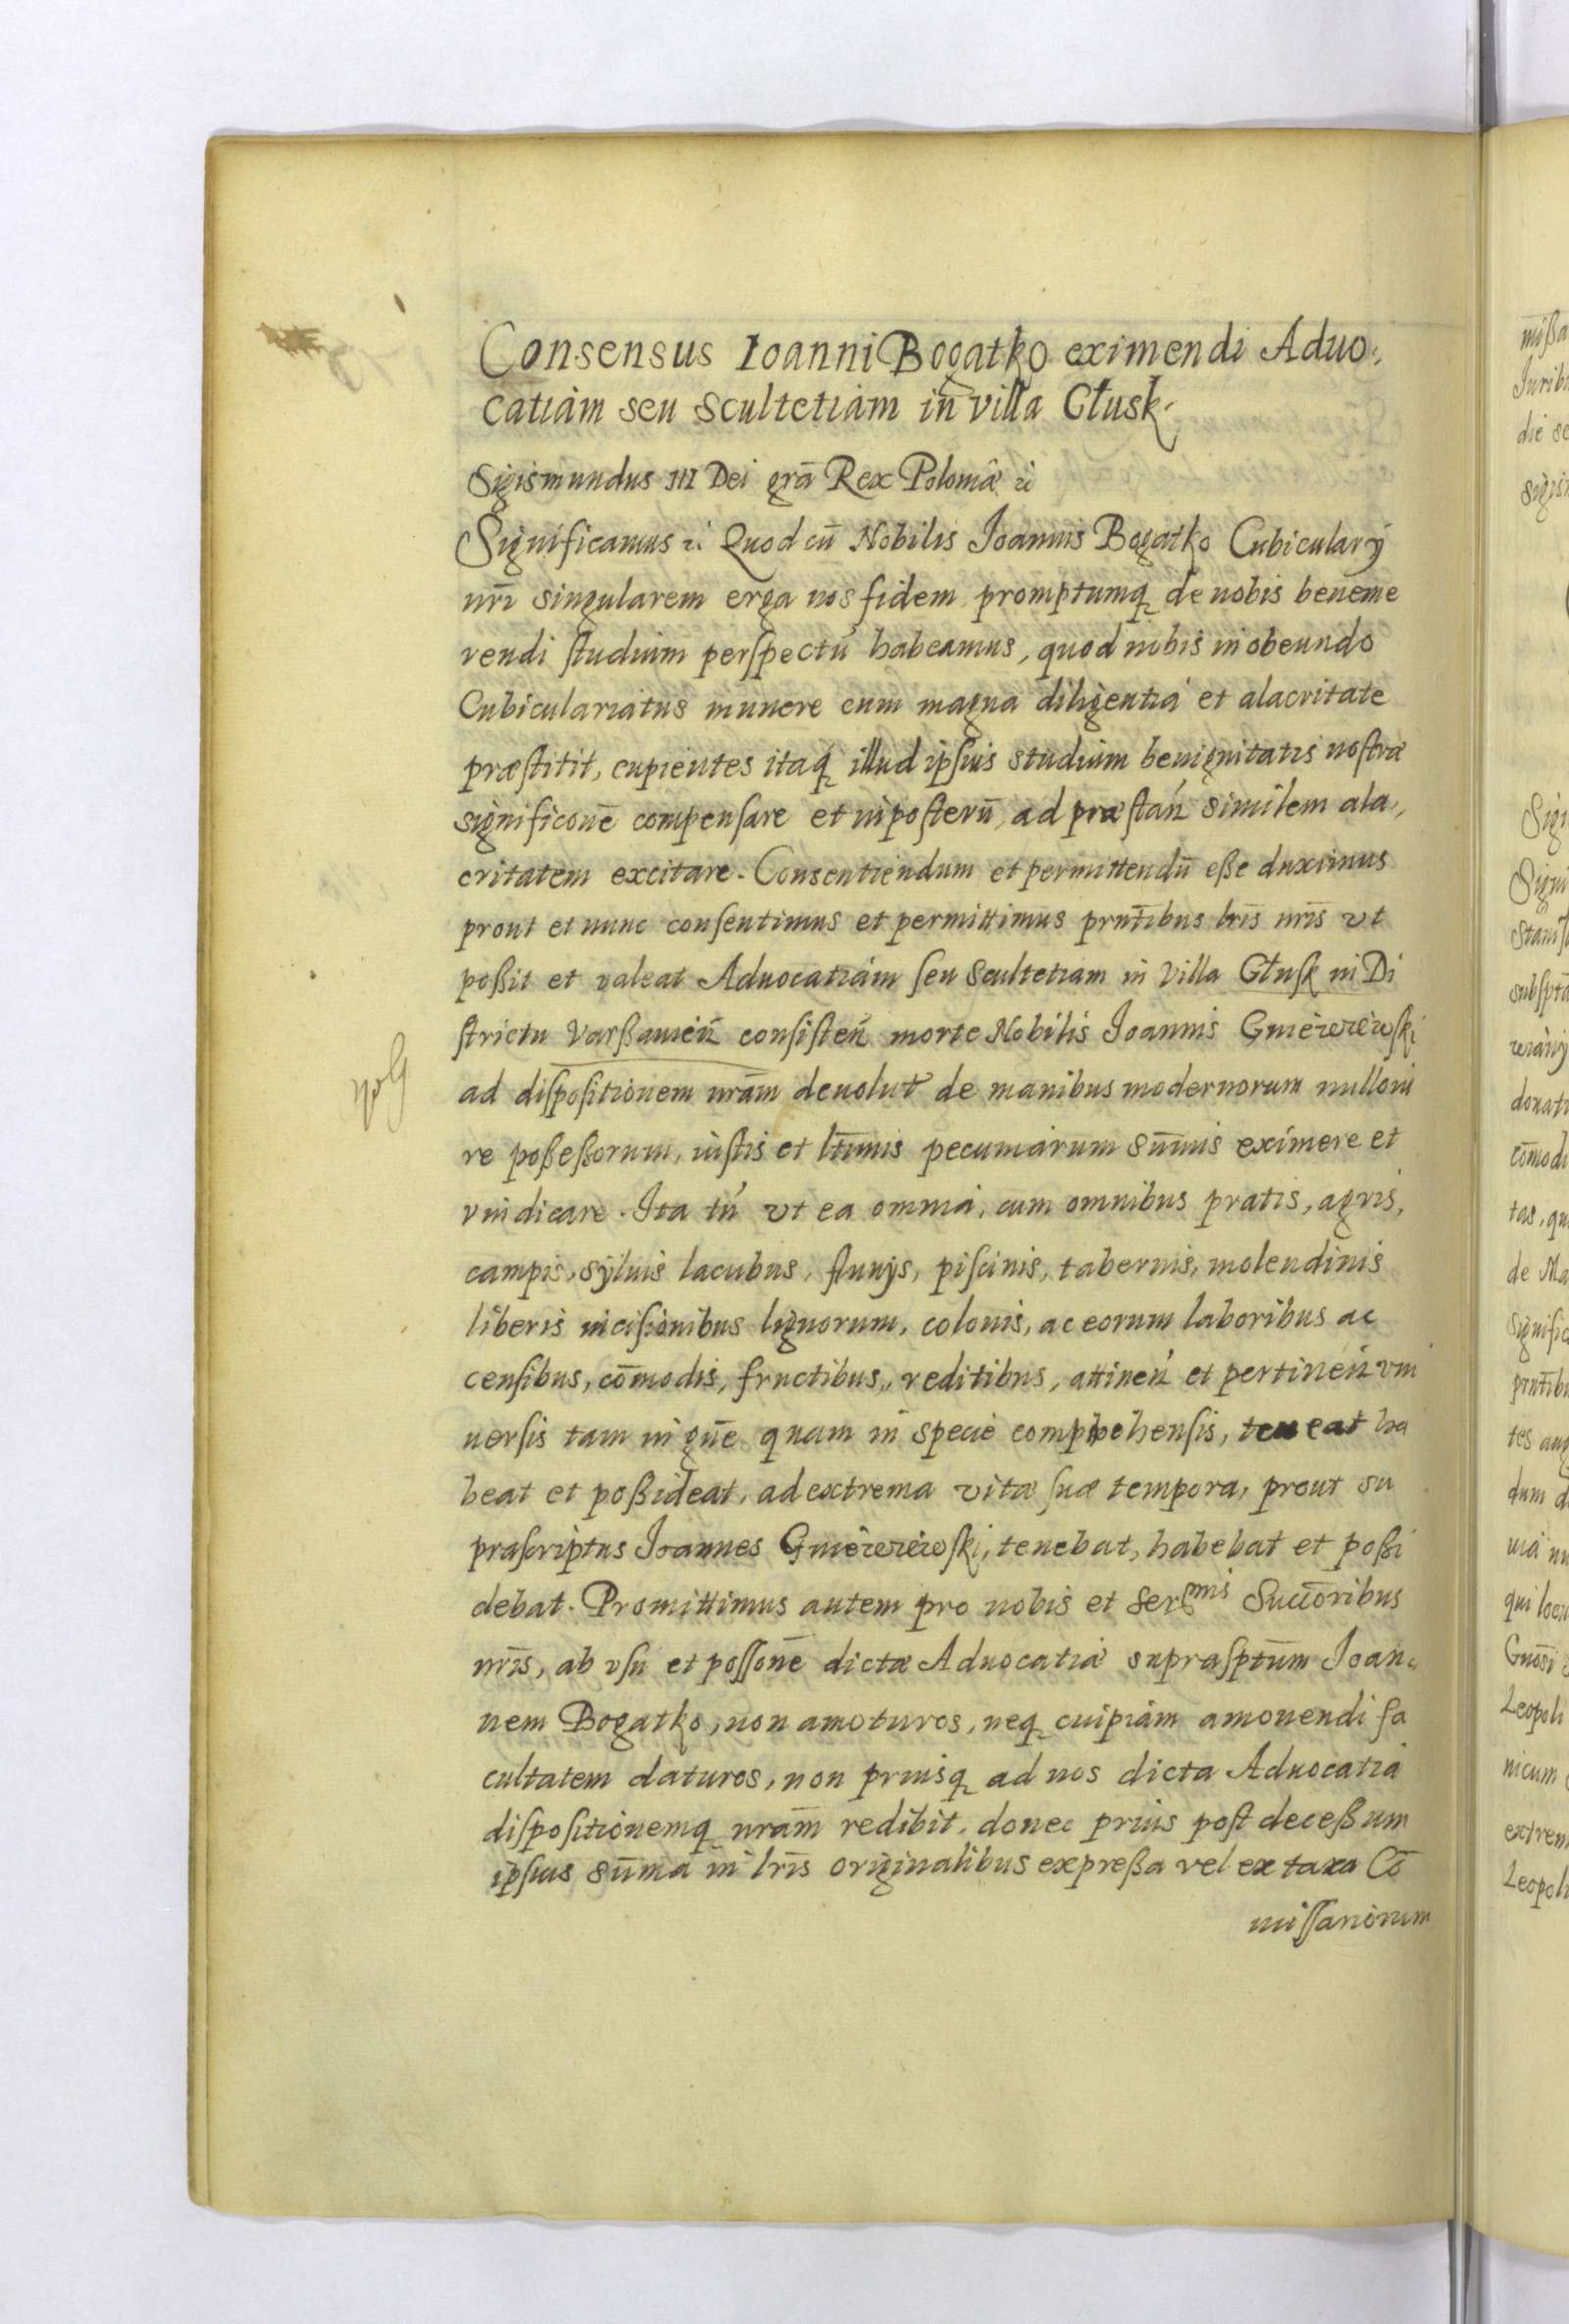 Consensus Ioanni Bogatko eximendi Aduo
catiam seu Scultetiam in villa Głusk.
Sigismundus III Dei grã Rex Poloniæ &
Significamus & Quod cũ Nobilis Joannis Bogatko Cubicularij
nrĩ singularem erga nos fidem promptumq de nobis beneme
rendi ſtudium perſpectũ habeamus, quod nobis in obeundo
Cubiculariatus munere cum magna diligentia et alacritate
præſtitit, cupientes itaq illud ipſius studium benignitatis noſtræ
significonẽ compenſare et in poſterũ, ad præſtañ similem ala
critatem excitare. Consentiendum et permittendũ eße duximus
prout et nunc conſentimus et permittimus prñtibus lrĩs nrĩs vt
poßit et valeat Aduocatiam ſeu Scultetiam in Villa Głuſk in Di
ſtrictu Varßawień conſiſteń morte Nobilis Joannis Gniewiewſki
ad diſpoſitionem nrãm deuolut de manibus modernorum nulloiu
re poßeßorum, iuſtis et ltimis pecuniarum sum̃is eximere et
vindicare. Ita tñ vt ea omnia, cum omnibus pratis, agris,
campis, sÿluis lacubus, fluuijs, piſcinis, tabernis, molendinis
liberis inciſionibus lignorum, colonis, ac eorum laboribus ac
cenſibus, cõmodis, fructibus, reditibus, attineń et pertineń vni
uerſis tam in gñe quam in specie comprehenſis, teneat ha
beat et poßideat, ad extrema vitæ ſuæ tempora, prout su
praſcriptus Joannes Gniewiewſki, tenebat, habebat et poßi
debat. Promittimus autem pro nobis et Serꝫmis Succoribus
nrĩs, ab vſu et poſſonẽ dictæ Aduocatiæ supraſptum Joan
nem Bogatko, non amoturos, neq cuipiam amouendi fa
cultatem daturos, non priusq ad nos dicta Aduocatia
diſpoſitionemq nram redibit, donec prius poſt deceßum
ipſius sum̃a in lrĩs originalibus expreßa vel ex taxa Cõ
miſſariorum